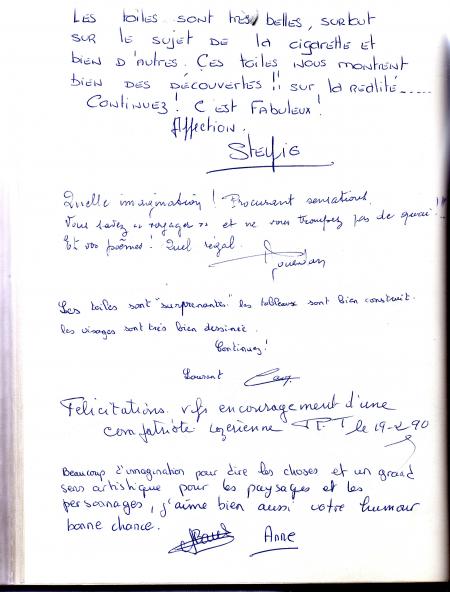 LES toiles SONT TRÈS belles, SURTOUT
SUR lE SUJET DE la cigarette et
biEN D'AUTRES. CES toiles NOUS MONTRENT
bIEN DES DÉCOUVERTES !! SUR la RÉALITÉ......
CONTINUEZ! C'EST FABULEUX!
Affection.
Quelle imagination! Procurant sensations.
Vous savez " voyager " et ne vous trompez pas de quai!..
Et vos poèmes! Quel régal.
Les toiles sont "surprenantes" les tableaux sont bien construit.
les visages sont très bien dessinée.
Continuez!
Laurent
Félicitations. encouragement d'une
compatriote lozérienne le 90
Beaucoup d'imagination pour dire les choses et un grand
sens artistique pour les paysages et les
personnages, j'aime bien aussi votre humour
bonne chance.
Anne